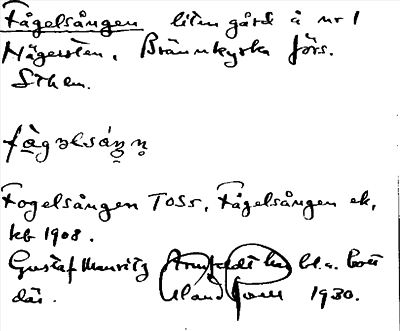 Fågelsången liten gård å nr 1
Hägersten, Brännkyrka förs.
Sthm.
fàgəlsáŋn̥
Fogelsången TOSS, Fågelsången ek,
kb 1908.
Gustaf Mauritz Armfeldt har bl.a. bott
där. 1930.